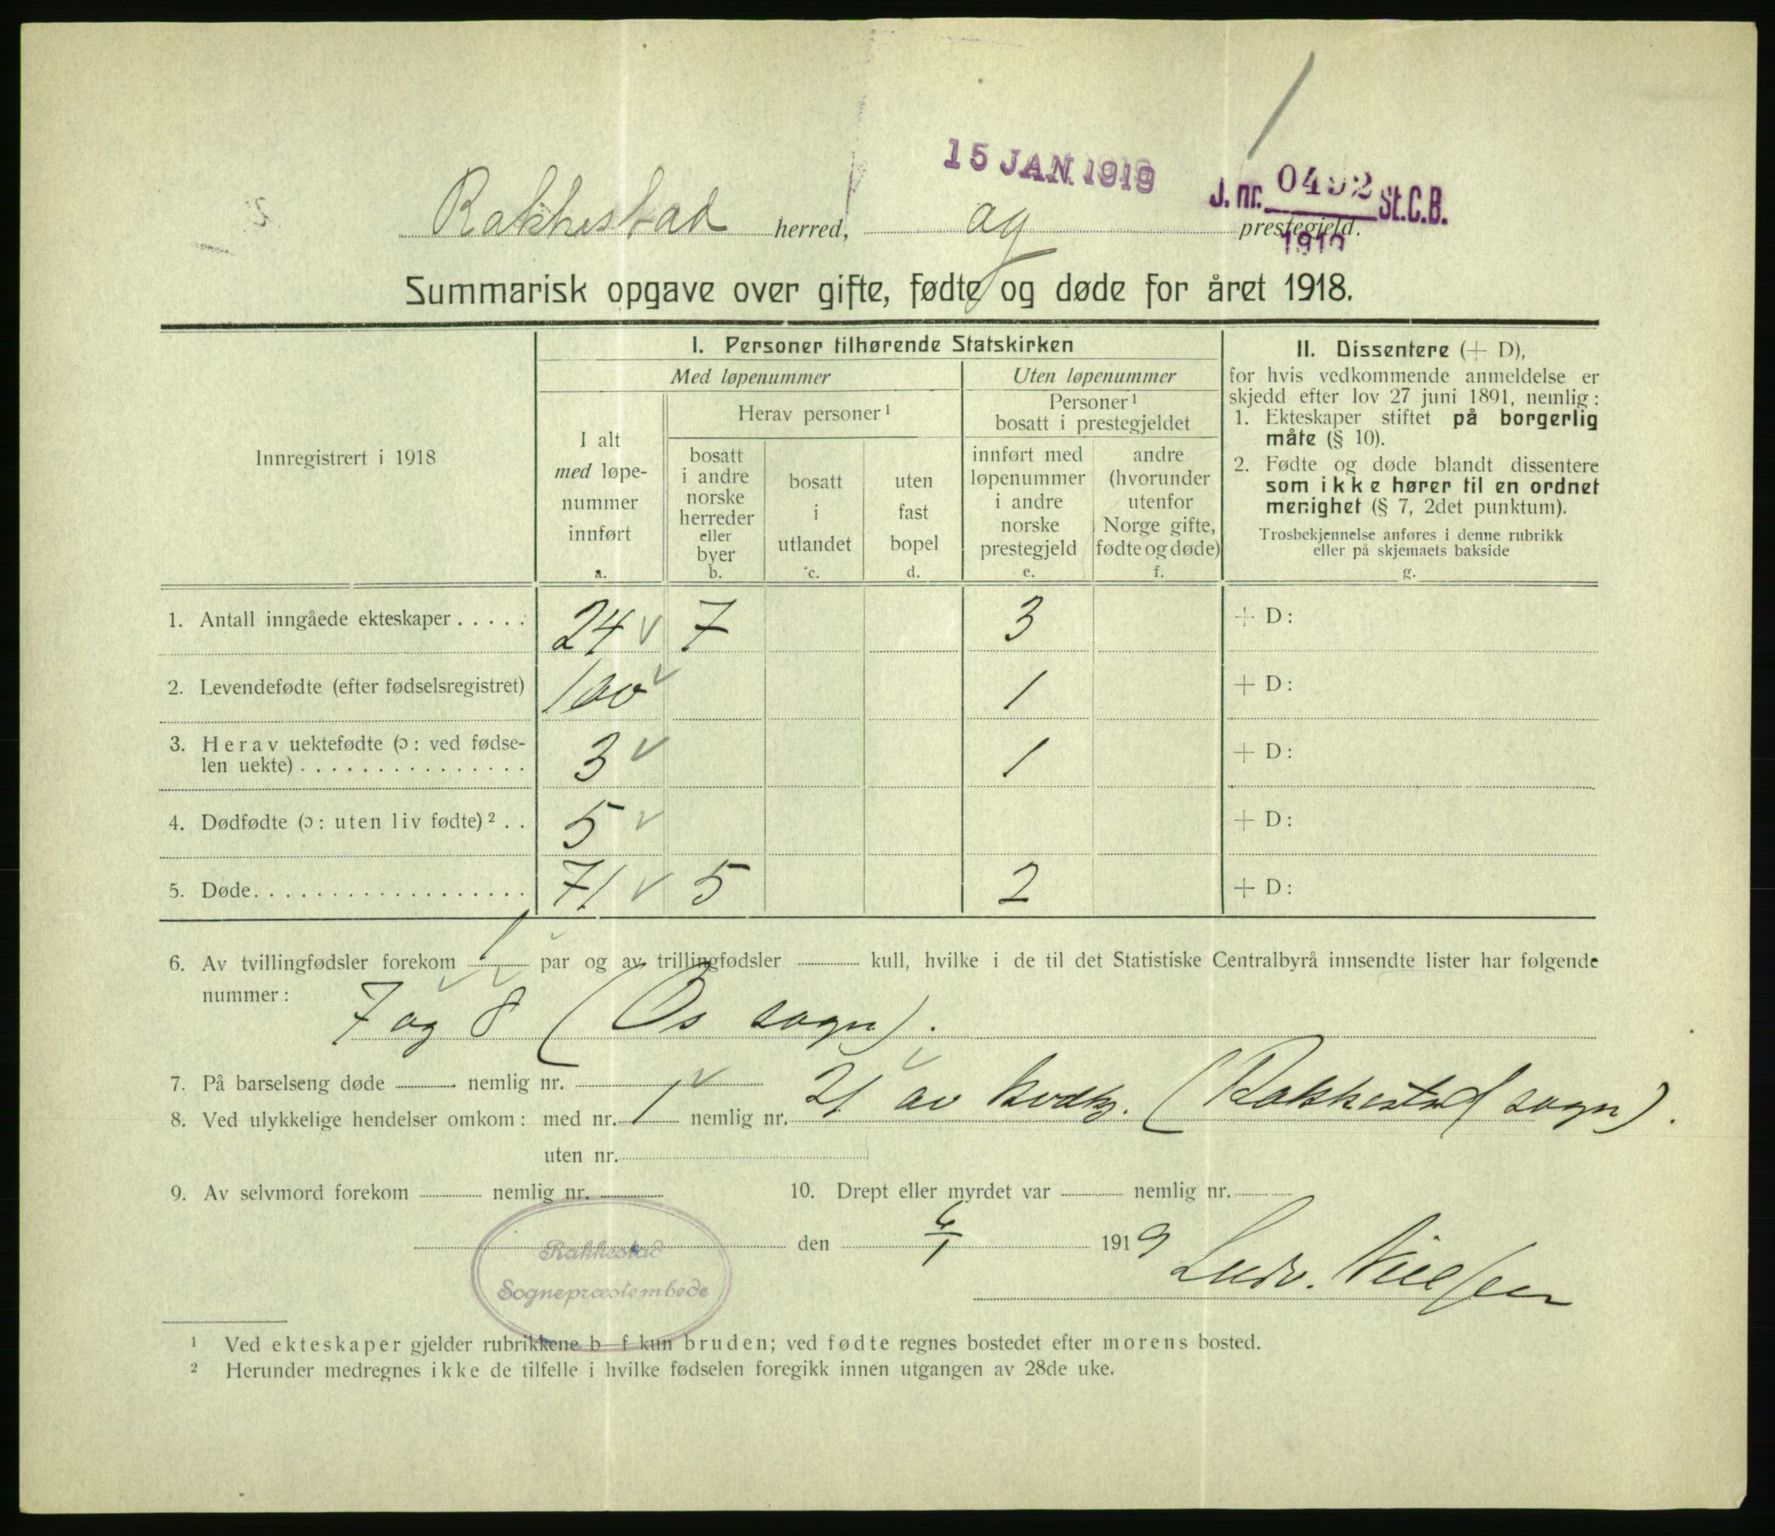 15 JAN. 1919
J. nr. 0492 St.C.B.
1919
Rakkestad herred, og prestegjeld.
Summarisk opgave over gifte, fødte og døde for året 1918.
Innregistrert i 1918
I. Personer tilhørende Statskirken
Med løpenummer
Uten løpenummer
I alt
med løpe-
nummer
innført
a.
Herav personer¹
bosatt
i andre
norske
herreder
eller
byer
b.
bosatt
i
utlandet
c.
uten
fast
bopel
d.
Personer¹
bosatt i prestegjeldet
innført med
løpenummer
i andre
norske
prestegjeld
e.
andre
(hvorunder
utenfor
Norge gifte,
fødte og døde)
f.
II. Dissentere (+ D),
for hvis vedkommende anmeldelse er
skjedd efter lov 27 juni 1891, nemlig:
1. Ekteskaper stiftet på borgerlig
måte (§ 10).
2. Fødte og døde blandt dissentere
som ikke hører til en ordnet
menighet (§ 7, 2det punktum).
Trosbekjennelse anføres i denne rubrikk
eller på skjemaets bakside
g.
1. Antall inngåede ekteskaper . . . . . 24 ✓ 7 3 + D:
2. Levendefødte (efter fødselsregistret) 100 ✓ 1 + D:
3. Herav uektefødte (ɔ: ved fødse-
len uekte) . . . . . . . . . . . . . . . 3 ✓ 1 + D:
4. Dødfødte (ɔ: uten liv fødte)² . . 5 ✓ + D:
5. Døde. . . . . . . . . . . . . . . . . . 71 ✓ 5 2 + D:
6. Av tvillingfødsler forekom 1 par og av trillingfødsler kull, hvilke i de til det Statistiske Centralbyrå innsendte lister har følgende
nummer: 7 og 8 (Os sogn).
7. På barselseng døde nemlig nr.
8. Ved ulykkelige hendelser omkom: med nr. 1 nemlig nr. 21 av (Rakkestad sogn).
uten nr.
9. Av selvmord forekom nemlig nr. 10. Drept eller myrdet var nemlig nr.
den 6/1 1919
Ludv. Nielsen
Rakkestad
Sognepræstembede
¹ Ved ekteskaper gjelder rubrikkene b–f kun bruden; ved fødte regnes bostedet efter morens bosted.
² Herunder medregnes ikke de tilfelle i hvilke fødselen foregikk innen utgangen av 28de uke.